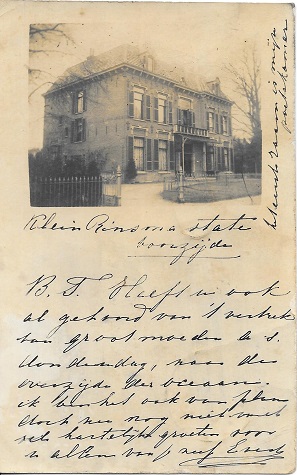 Klein Rinsma state
voorzijde
B. T. Heeft u ook
al gehoord van 't vertrek
van grootmoeder a. s.
donderdag, naar de
overzijde der oceaan.
ik ben het ook van plan
doch nu nog niet met
hartelijke groeten voor
u allen van neef Evert
raam is mijn